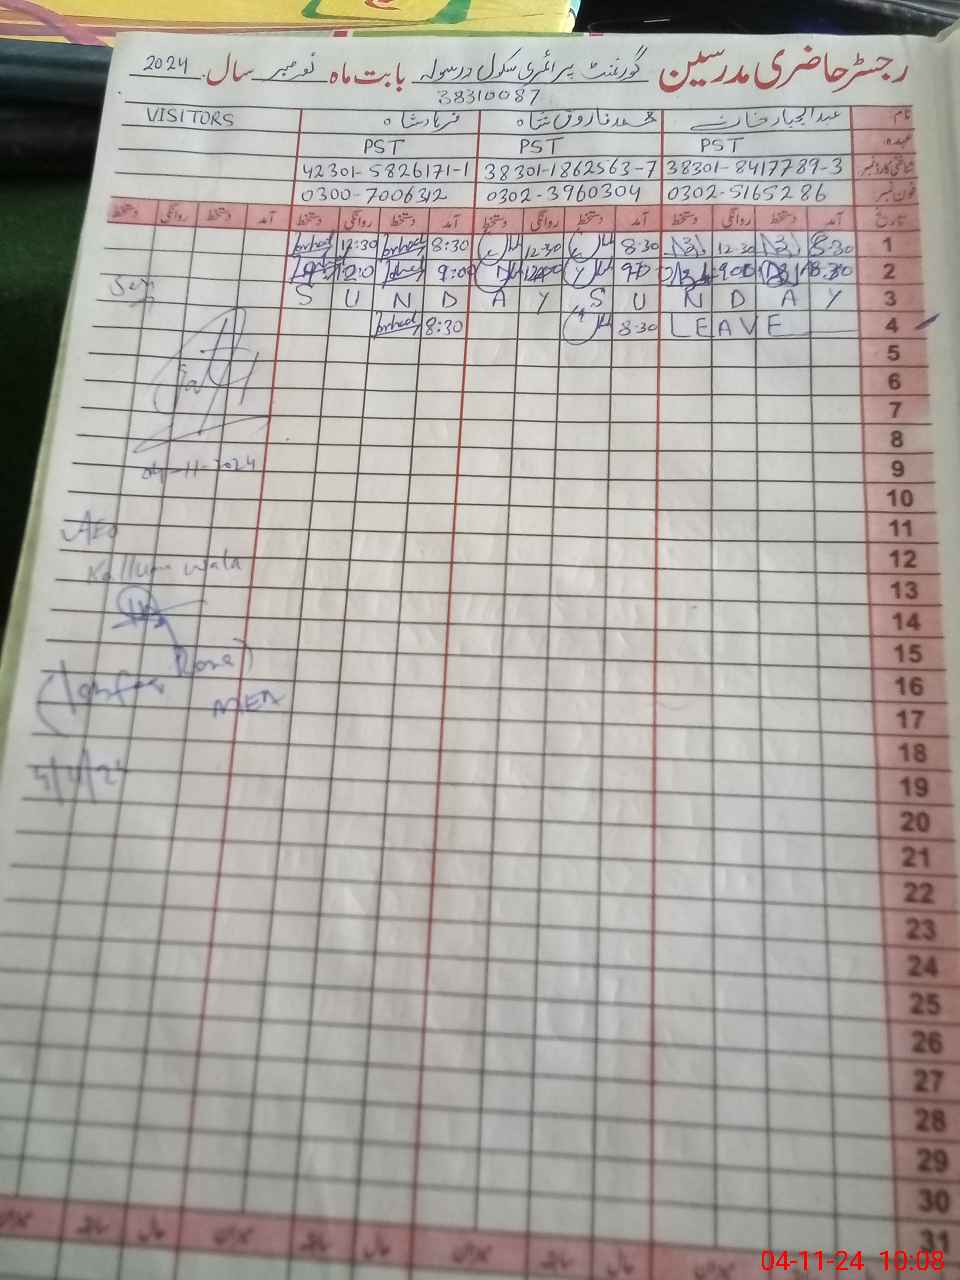 رجسٹر حاضری مدرسین گورنمنٹ پرائمری سکول درسولہ بابت ماہ نومبر سال 2024
38310087
نام عبدالجبار خان محمد فاروق شاہ فرہاد شاہ VISITORS
عہدہ PST PST PST
شناختی کارڈ نمبر 38301-8417789-3 38301-1862563-7 42301-5826171-1
فون نمبر 0302-5165286 0302-3960304 0300-7006312
تاریخ آمد دستخط روانگی دستخط آمد دستخط روانگی دستخط آمد دستخط روانگی دستخط آمد دستخط روانگی دستخط
1 8:30 12:30 8:30 12:30 8:30 12:30
2 8:30 9:00
3 S U N D A Y S U N D A Y
4 LEAVE 8:30 8:30
5
6
7
8
04-11-2024
9
10
11
AEO
12
Kallur wala
13
14
15
16
MEA
17
18
19
20
21
22
23
24
25
26
27
28
29
30
31
04-11-24 10:08